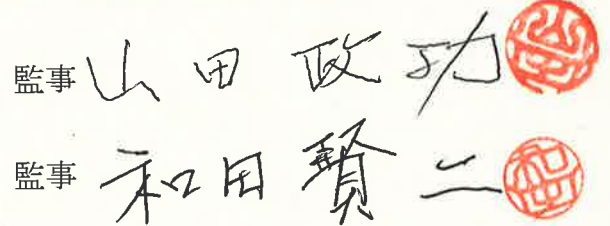 監事 山田政功
監事 和田賢二